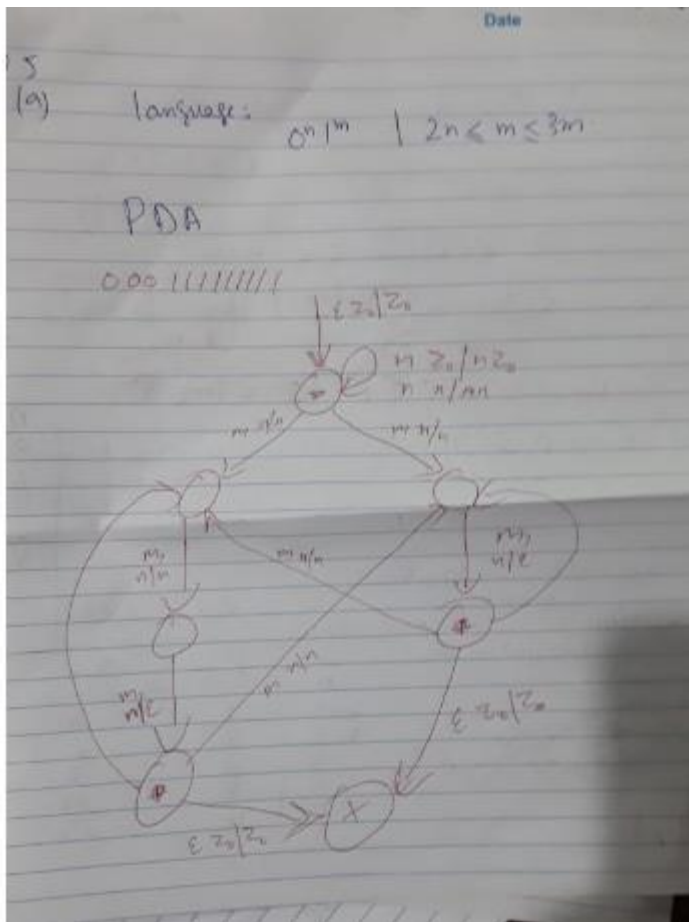 Date
5
(a) language: 0ⁿ1ᵐ | 2n ≤ m ≤ 3m
PDA
000 111111111
ε z₀/z₀
n z₀/n z₀
n n/nn
m n/n
m n/n
m,
n/n
m n/n
m,
n/ε
m
n/ε
m n/n
ε z₀/z₀
ε z₀/z₀